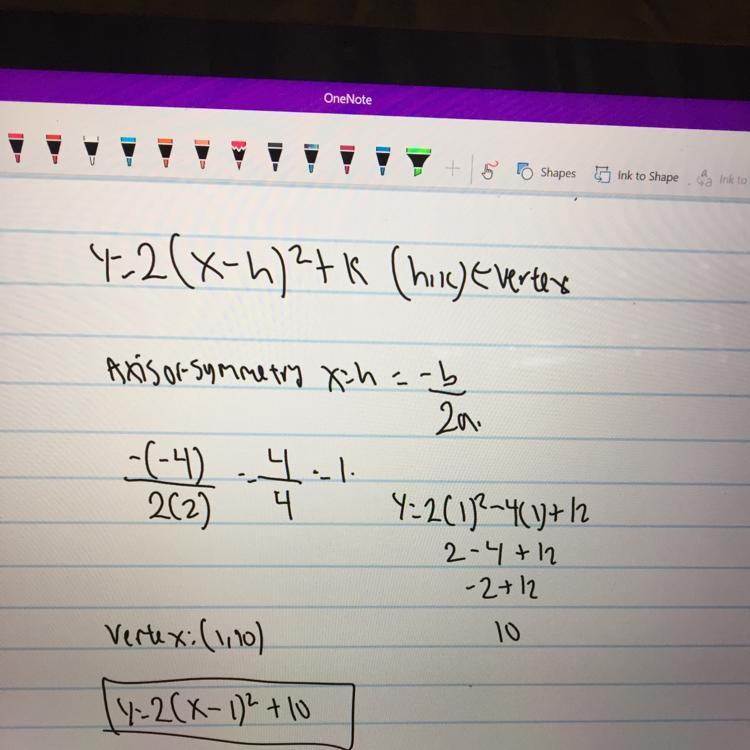 OneNote
Shapes
Ink to Shape
Ink to
y=2(x-h)²+k (h,k)←vertex
Axis of symmetry x=h = -b/2a.
-(-4)/2(2) = 4/4 = 1.
y=2(1)²-4(1)+12
2-4+12
-2+12
10
Vertex: (1,10)
y=2(x-1)²+10